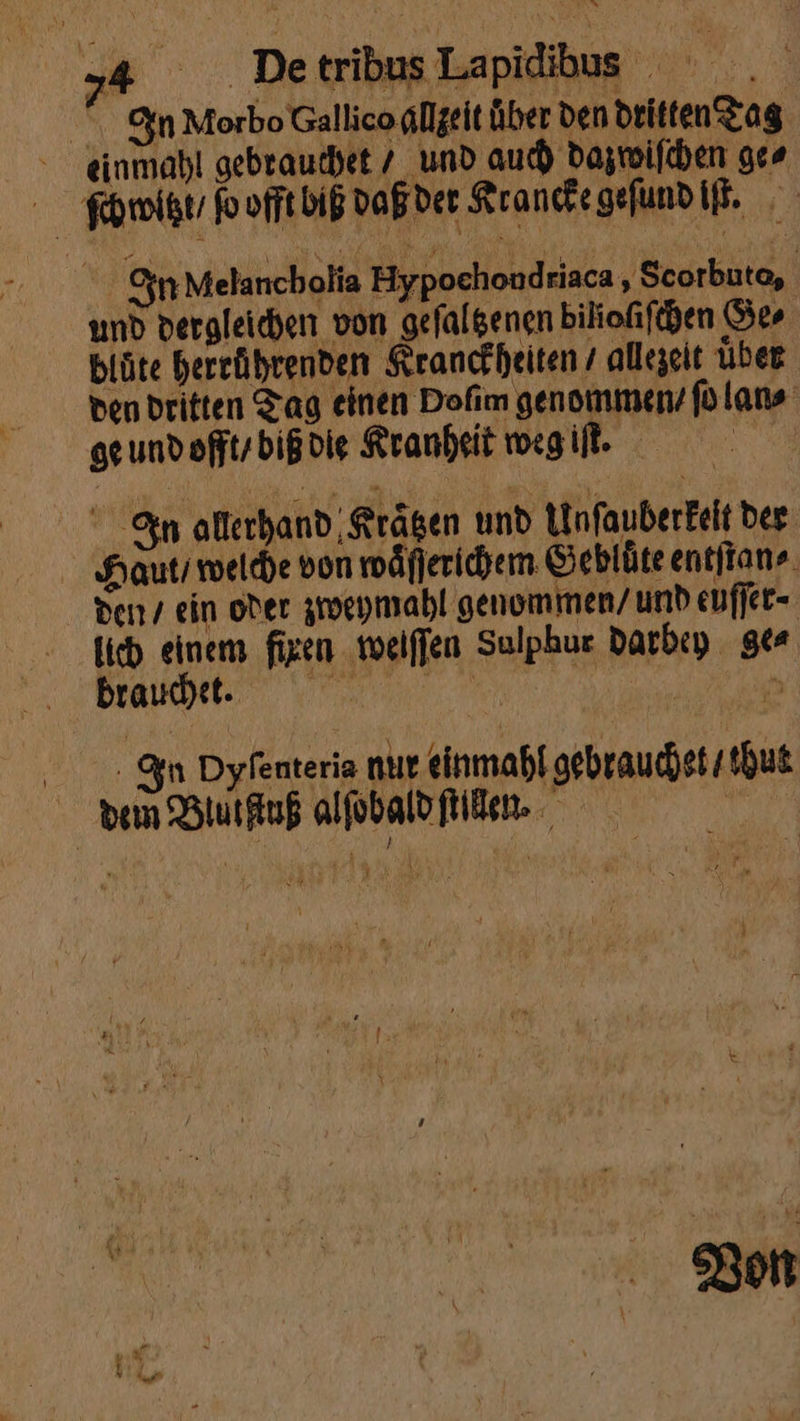 74 De tribus Lapidibus
In Morbo Gallico allzeit uͤber den dritten Tag
einmahl gebrauchet / und auch dazwiſchen ge⸗
ſchwitzt / ſo offt biß daß der Krancke geſund iſt.
In Melancholia Hypochondriaca, Scorbuto,
und dergleichen von geſaltzenen bilioſiſchen Ge⸗
bluͤte herruͤhrenden Kranckheiten / allezeit uͤber
den dritten Tag einen Doſim genommen / ſo lan⸗
ge und offt / biß die Kranheit weg iſt.
In allerhand Kraͤtzen und Unſauberkeit der
Haut / welche von waͤſſerichem Gebluͤte entſtan⸗
den / ein oder zweymahl genommen / und euſſer-
lich einem fixen weiſſen Sulphur darbey ge⸗
brauchet.
In Dyſenteria nur einmahl gebrauchet / thut
dem Blutfluß alſobald ſtillen.
Von